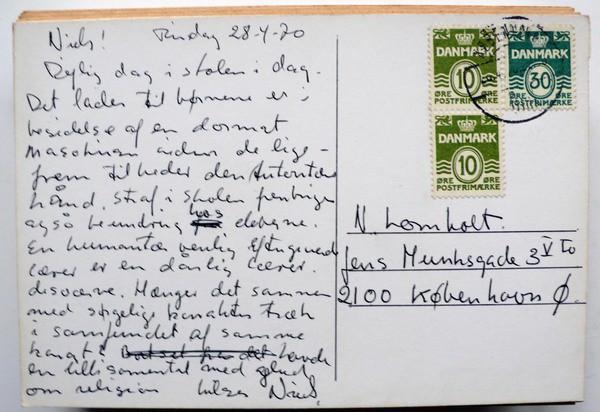 Niels! Tirsdag 28-4-70
Dejlig dag i skolen i dag.
Det lader til børnene er i
besiddelse af en dormat
Masochisme
frem til heder den Autoritære
hånd, straf i skolen
også beundring hos eleverne.
En humanitær venlig eftergivende
lærer er en dårlig lærer.
desværre. Hænger det sammen
med sørgelige karakter træk
i samfundet af samme
karat? havde
en lille samtale med
om religion hilsen Niels.
DANMARK
10
ØRE ØRE
POSTFRIMÆRKE
DANMARK
30
ØRE ØRE
POSTFRIMÆRKE
DANMARK
10
ØRE ØRE
POSTFRIMÆRKE
N. Lomholt.
Jens Munksgade 3 V To
2100 København Ø.